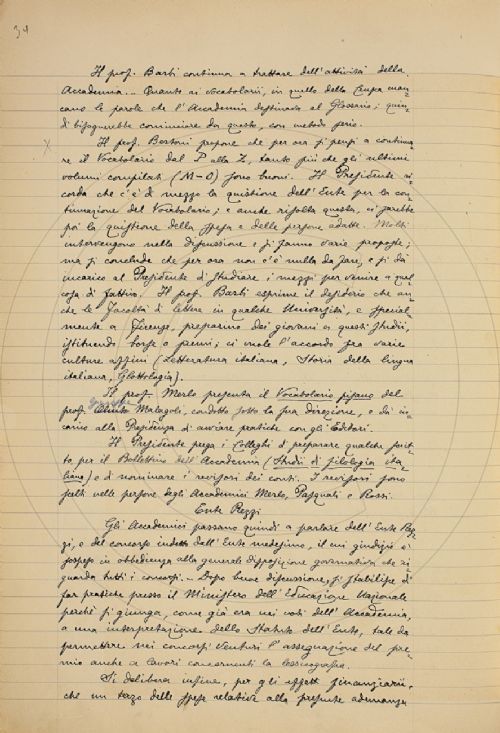 34
Il prof. Barbi continua a trattare dell'attività della
Accademia. – Quanto ai vocabolarii, in quello della Crusca man-
cano le parole che l'Accademia destinava al Glossario; quin-
di bisognerebbe cominciare da questo, con metodo serio.
Il prof. Bertoni propone che per ora si pensi a continua-
re il Vocabolario dal P alla Z, tanto più che gli ultimi
volumi compilati (M–O) sono buoni. Il Presidente ri-
corda che c'è di mezzo la quistione dell'Ente per la con-
tinuazione del Vocabolario; e anche risolta questa, ci sarebbe
poi la quistione della spesa e delle persone adatte. Molti
intervengono nella discussione e si fanno varie proposte;
ma si conclude che per ora non c'è nulla da fare, e si dà
incarico al Presidente di studiare i mezzi per venire a qual
cosa di fattivo. Il prof. Barbi esprime il desiderio che an-
che le Facoltà di lettere in qualche Università, e special
mente a Firenze, preparino dei giovani a questi studii,
istituendo borse o premi; ci vuole l'accordo fra varie
culture affini (Letteratura italiana, Storia della lingua
italiana, Glottologia).
Il prof. Merlo presenta il Vocabolario pisano del
prof. Malagoli, condotto sotto la sua direzione, e dà in-
carico alla Presidenza di avviare pratiche con gli Editori.
Il Presidente prega i Colleghi di preparare qualche scrit-
to per il Bollettino dell'Accademia (Studii di filologia ita
liana) e di nominare i revisori dei conti. I revisori sono
scelti nelle persone degli Accademici Merlo, Pasquali e Rossi.
Ente Rezzi
Gli Accademici passano quindi a parlare dell'Ente Rez-
zi, e del concorso indetto dall'Ente medesimo, il cui giudizio è
sospeso in obbedienza alla generale disposizione governativa che ri-
guarda tutti i concorsi. – Dopo breve discussione, si stabilisce di
far pratiche presso il Ministero dell'Educazione Nazionale
perché si giunga, come già era nei voti dell'Accademia,
a una interpretazione dello Statuto dell'Ente, tale da
permettere nei concorsi venturi l'assegnazione del pre-
mio anche a lavori concernenti la lessicografia.
Si delibera infine, per gli effetti finanziarii,
che un terzo delle spese relative alla presente adunanza